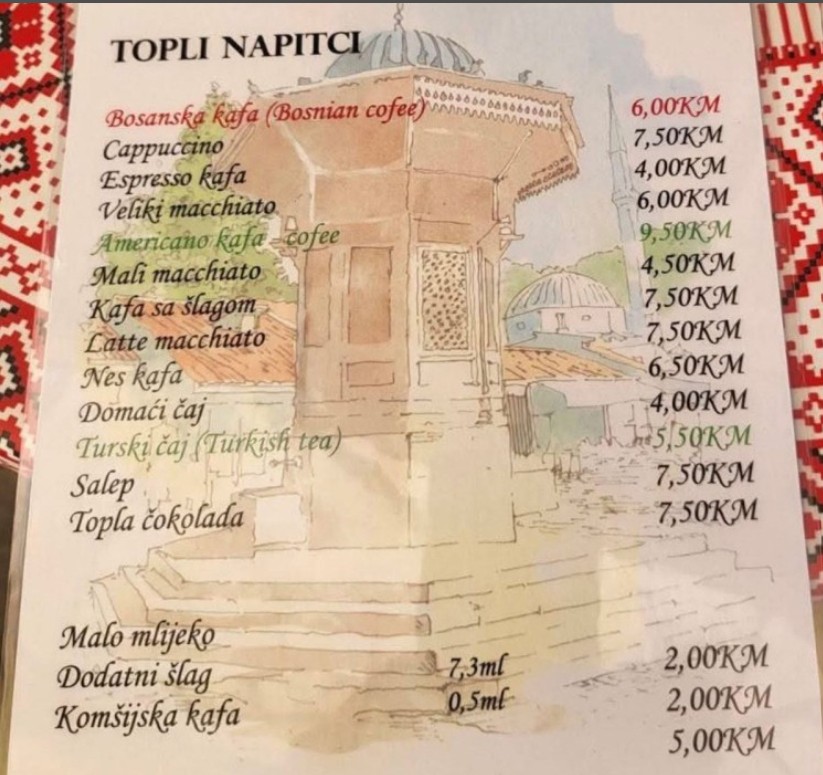 TOPLI NAPITCI
Bosanska kafa (Bosnian cofee) 6,00KM
Cappuccino 7,50KM
Espresso kafa 4,00KM
Veliki macchiato 6,00KM
Americano kafa - cofee 9,50KM
Mali macchiato 4,50KM
Kafa sa šlagom 7,50KM
Latte macchiato 7,50KM
Nes kafa 6,50KM
Domaći čaj 4,00KM
Turski čaj (Turkish tea) 5,50KM
Salep 7,50KM
Topla čokolada 7,50KM
Malo mlijeko 7,3ml 2,00KM
Dodatni šlag 0,5ml 2,00KM
Komšijska kafa 5,00KM